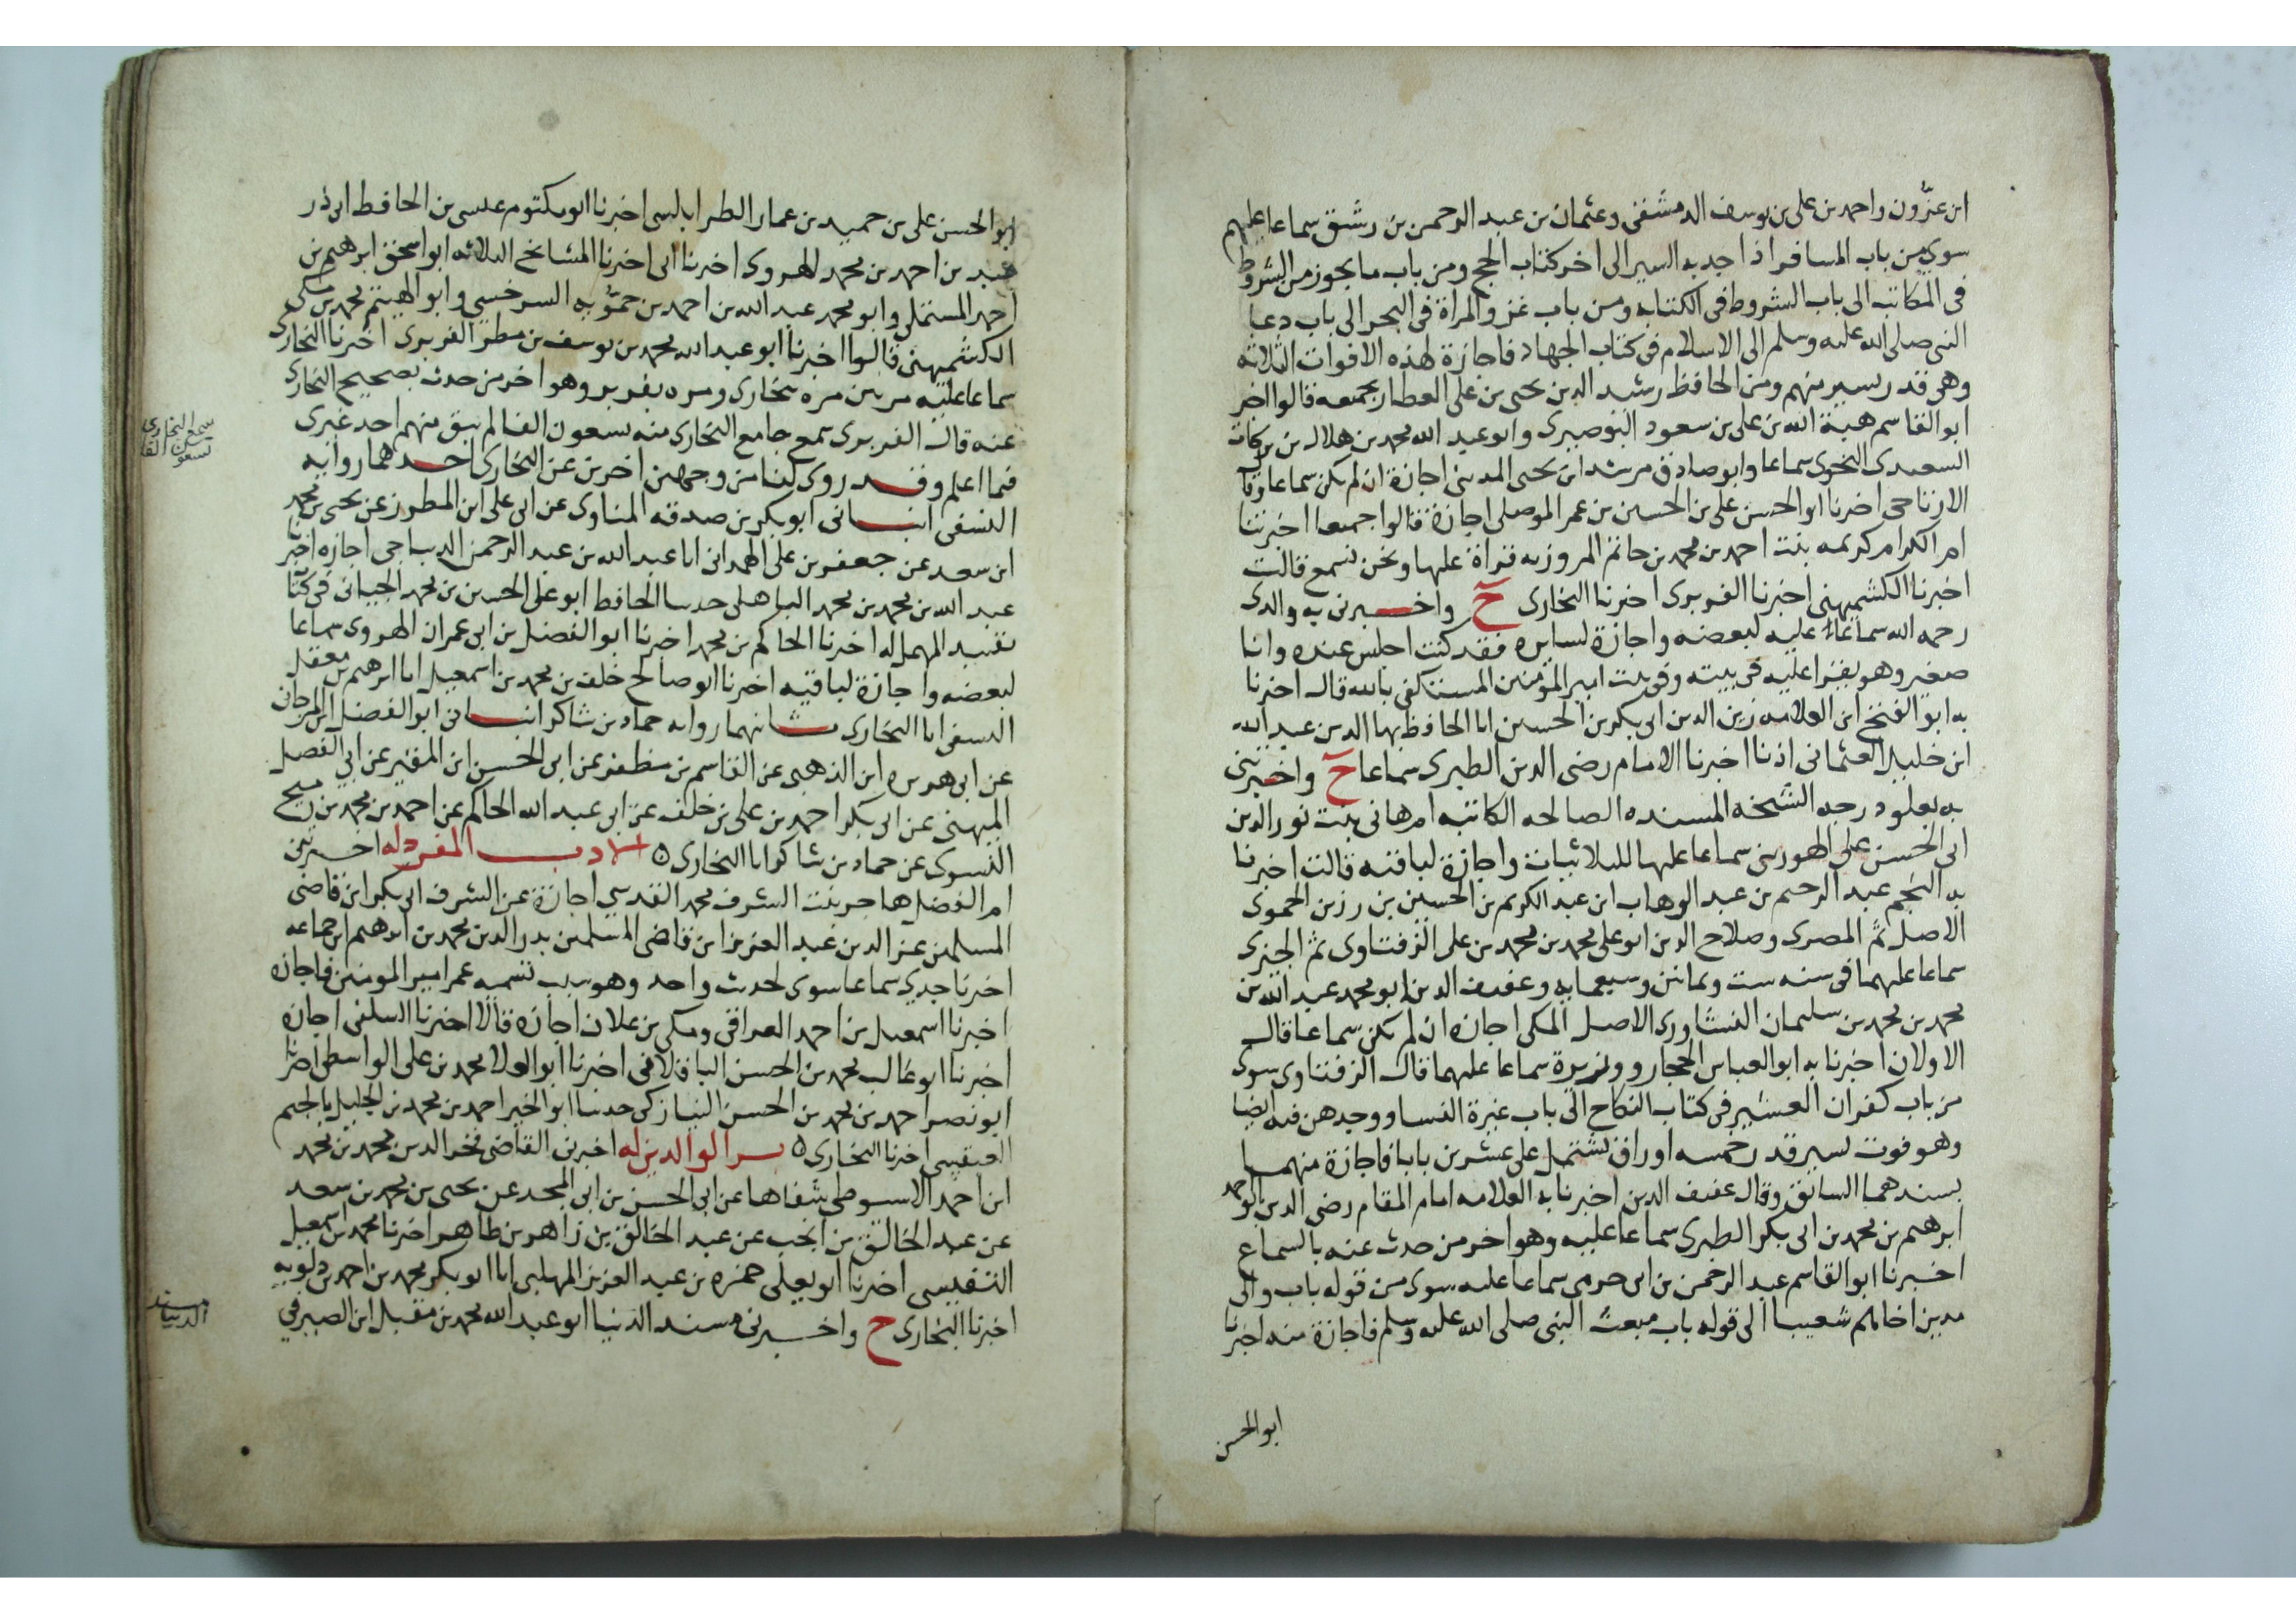 ابن عزّون واحمد بن على بن يوسف الدمشقى وعثمان بن عبد الرحمن بن رشيق سماعا عليهم
سوى من باب المسافر اذا جد به السير الى اخر كتاب الحج ومن باب ما يجوز من الشروط
فى المكاتب الى باب الشروط فى الكتابه ومن باب غزو المراة فى البحر الى باب دعا
النبى صلى الله عليه وسلم الى الاسلام فى كتاب الجهاد فاجازة لهذه الافوات الثلاثه
وهو قدر يسير منهم ومن الحافظ رشيد الدين يحيى بن على العطار بجميعه قالوا اخبر
ابو القاسم هبة الله بن على بن سعود البوصيرى وابو عبد الله محمد بن هلال بن بركات
السعيدى النحوى سماعا وابو صادق مرشد ابن يحيى المدينى اجازة ان لم يكن سماعا وقا
الارتاحى اخبرنا ابو الحسن على بن الحسين بن عمر الموصلى اجازة قالوا جميعا اخبرتنا
ام الكرام كريمه بنت احمد بن محمد بن حاتم المروزيه قراة عليها ونحن نسمع قالت
اخبرنا الكشميهنى اخبرنا الفربرى اخبرنا البخارى ح واخبرنى به والدى
رحمه الله سماعا عليه لبعضه واجازة لسايره فقد كنت اجلس عنده وانا
صغير وهو يقرا عليه فى بيته وفى بيت امير المومنين المستكفى بالله قال اخبرنا
به ابو الفتح ابن العلامه زين الدين ابى بكر بن الحسين انا الحافظ بها الدين عبد الله
ابن خليل العثمانى اذنا اخبرنا الامام رضى الدين الطبرى سماعا ح واخبرتنى
به بعلو درجه الشيخه المسنده الصالحه الكاتبه ام هانى بنت نور الدين
ابى الحسن على الهورينى سماعا عليها لثلاثياته واجازة لباقيه قالت اخبرنا
به النجم عبد الرحيم بن عبد الوهاب ابن عبد الكريم بن الحسين بن رزين الحموى
الاصل ثم المصرى وصلاح الدين ابو على محمد بن محمد بن على الزفتاوى ثم الجيزى
سماعا عليهما فى سنه ست وثمانين وسبعمايه وعفيف الدين ابو محمد عبد الله بن
محمد بن محمد بن سليمان النشاورى الاصل المكى اجازه ان لم يكن سماعا قال
الاولان اخبرنا به ابو العباس الحجار ووزيرة سماعا عليهما قال الزفتاوى سوى
من باب كفران العشير فى كتاب النكاح الى باب غيرة النسا ووجدهن فيه ايضا
وهو فوت يسير قدر خمسه اوراق يشتمل على عشرين بابا فاجازة منهما
بسندهما السابق وقال عفيف الدين اخبرنا به العلامه امام المقام رضى الدين ابو احمد
ابرهيم بن محمد بن ابى بكر الطبرى سماعا عليه وهو اخر من حدث عنه بالسماع
اخبرنا ابو القاسم عبد الرحمن بن ابى حرمى سماعا عليه سوى من قوله باب والى
مدين اخاهم شعيبا الى قوله باب مبعث النبى صلى الله عليه وسلم فاجازة منه اخبرنا
ابو الحسن
ابو الحسن على بن حميد بن عمار الطرابلسى اخبرنا ابو مكتوم عيسى بن الحافظ ابى ذر
عبد بن احمد بن محمد الهروى اخبرنا ابى اخبرنا المشايخ الثلاثه ابو اسحق ابرهيم بن
احمد المستملى وابو محمد عبد الله بن احمد بن حمّويه السرخسى وابو الهيثم محمد بن مكى
الكشميهنى قالوا اخبرنا ابو عبد الله محمد بن يوسف بن مطر الفربرى اخبرنا البخارى
سماعا عليه مرتين مره ببخارى ومره بفربر وهو اخر من حدث بصحيح البخارى
عنه قال الفربرى سمع جامع البخارى منه تسعون الفا لم يبق منهم احد غيرى
فيما اعلم وقد روى لنا من وجهين اخرين عن البخارى احدهما روايه
النسفى انبانى ابو بكر بن صدقه المناوى عن ابى على ابن المطرز عن يحيى بن محمد
ابن سعد عن جعفر بن على الهمدانى انا عبد الله بن عبد الرحمن الديباجى اجازه اخبرنا
عبد الله بن محمد بن محمد الباهلى حدثنا الحافظ ابو على الحسين بن محمد الجيانى فى كتاب
تقييد المهمل له اخبرنا الحاكم بن محمد اخبرنا ابو الفضل بن ابى عمران الهروى سماعا
لبعضه واجازة لباقيه اخبرنا ابو صالح خلف بن محمد بن اسمعيل انا ابرهيم بن معقل
النسفى انا البخارى ثانيهما روايه حماد بن شاكر انبانى ابو الفضل المرجانى
عن ابى هريره ابن الذهبى عن القاسم بن مظفر عن ابى الحسن ابن المقير عن ابى الفضل
الميهنى عن ابى بكر احمد بن على بن خلف عن ابى عبد الله الحاكم عن احمد بن محمد بن رميح
النسوى عن حماد بن شاكر انا البخارى ٥ الادب المفرد له اخبرتنى
ام الفضل هاجر بنت الشرف محمد القدسى اجازة عن الشرف ابى بكر ابن قاضى
المسلمين عز الدين عبد العزيز ابن قاضى المسلمين بدر الدين محمد بن ابرهيم ابن جماعه
اخبرنا جدى سماعا سوى لحديث واحد وهو سبب تسميه عمر امير المومنين فاجازه
اخبرنا اسمعيل بن احمد العراقى ومكى بن علان اجازة قالا اخبرنا السلفى اجازه
اخبرنا ابو غالب محمد بن الحسن الباقلانى اخبرنا ابو العلا محمد بن على الواسطى اخبرنا
ابو نصر احمد بن محمد بن الحسن النيازكى حدثنا ابو الخير احمد بن محمد بن الجليل بالجيم
العبقسى اخبرنا البخارى ٥ بر الوالدين له اخبرنى القاضى فخر الدين محمد بن محمد
ابن احمد الاسيوطى شفاها عن ابى الحسن بن ابى المجد عن يحيى بن محمد بن سعد
عن عبد الخالق بن انجب عن عبد الخالق بن زاهر بن طاهر اخبرنا محمد بن اسمعيل
التفليسى اخبرنا ابو يعلى حمزه بن عبد العزيز المهلبى انا ابو بكر محمد بن احمد بن دلويه
اخبرنا البخارى ح واخبرنى مسند الدنيا ابو عبد الله محمد بن مقبل ابن الصيرفى
سمع البخارى
تسعون الفا
مسند
الدنيا